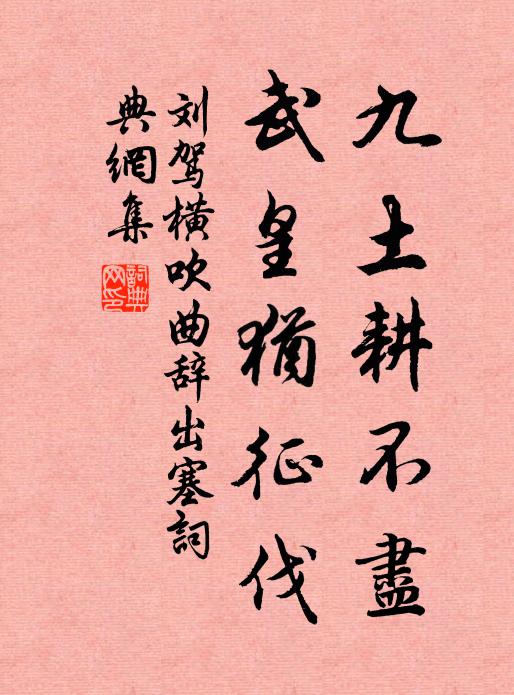 九土耕不盡
武皇猶征伐
刘驾横吹曲辞出塞詞
典網集
詞典网印